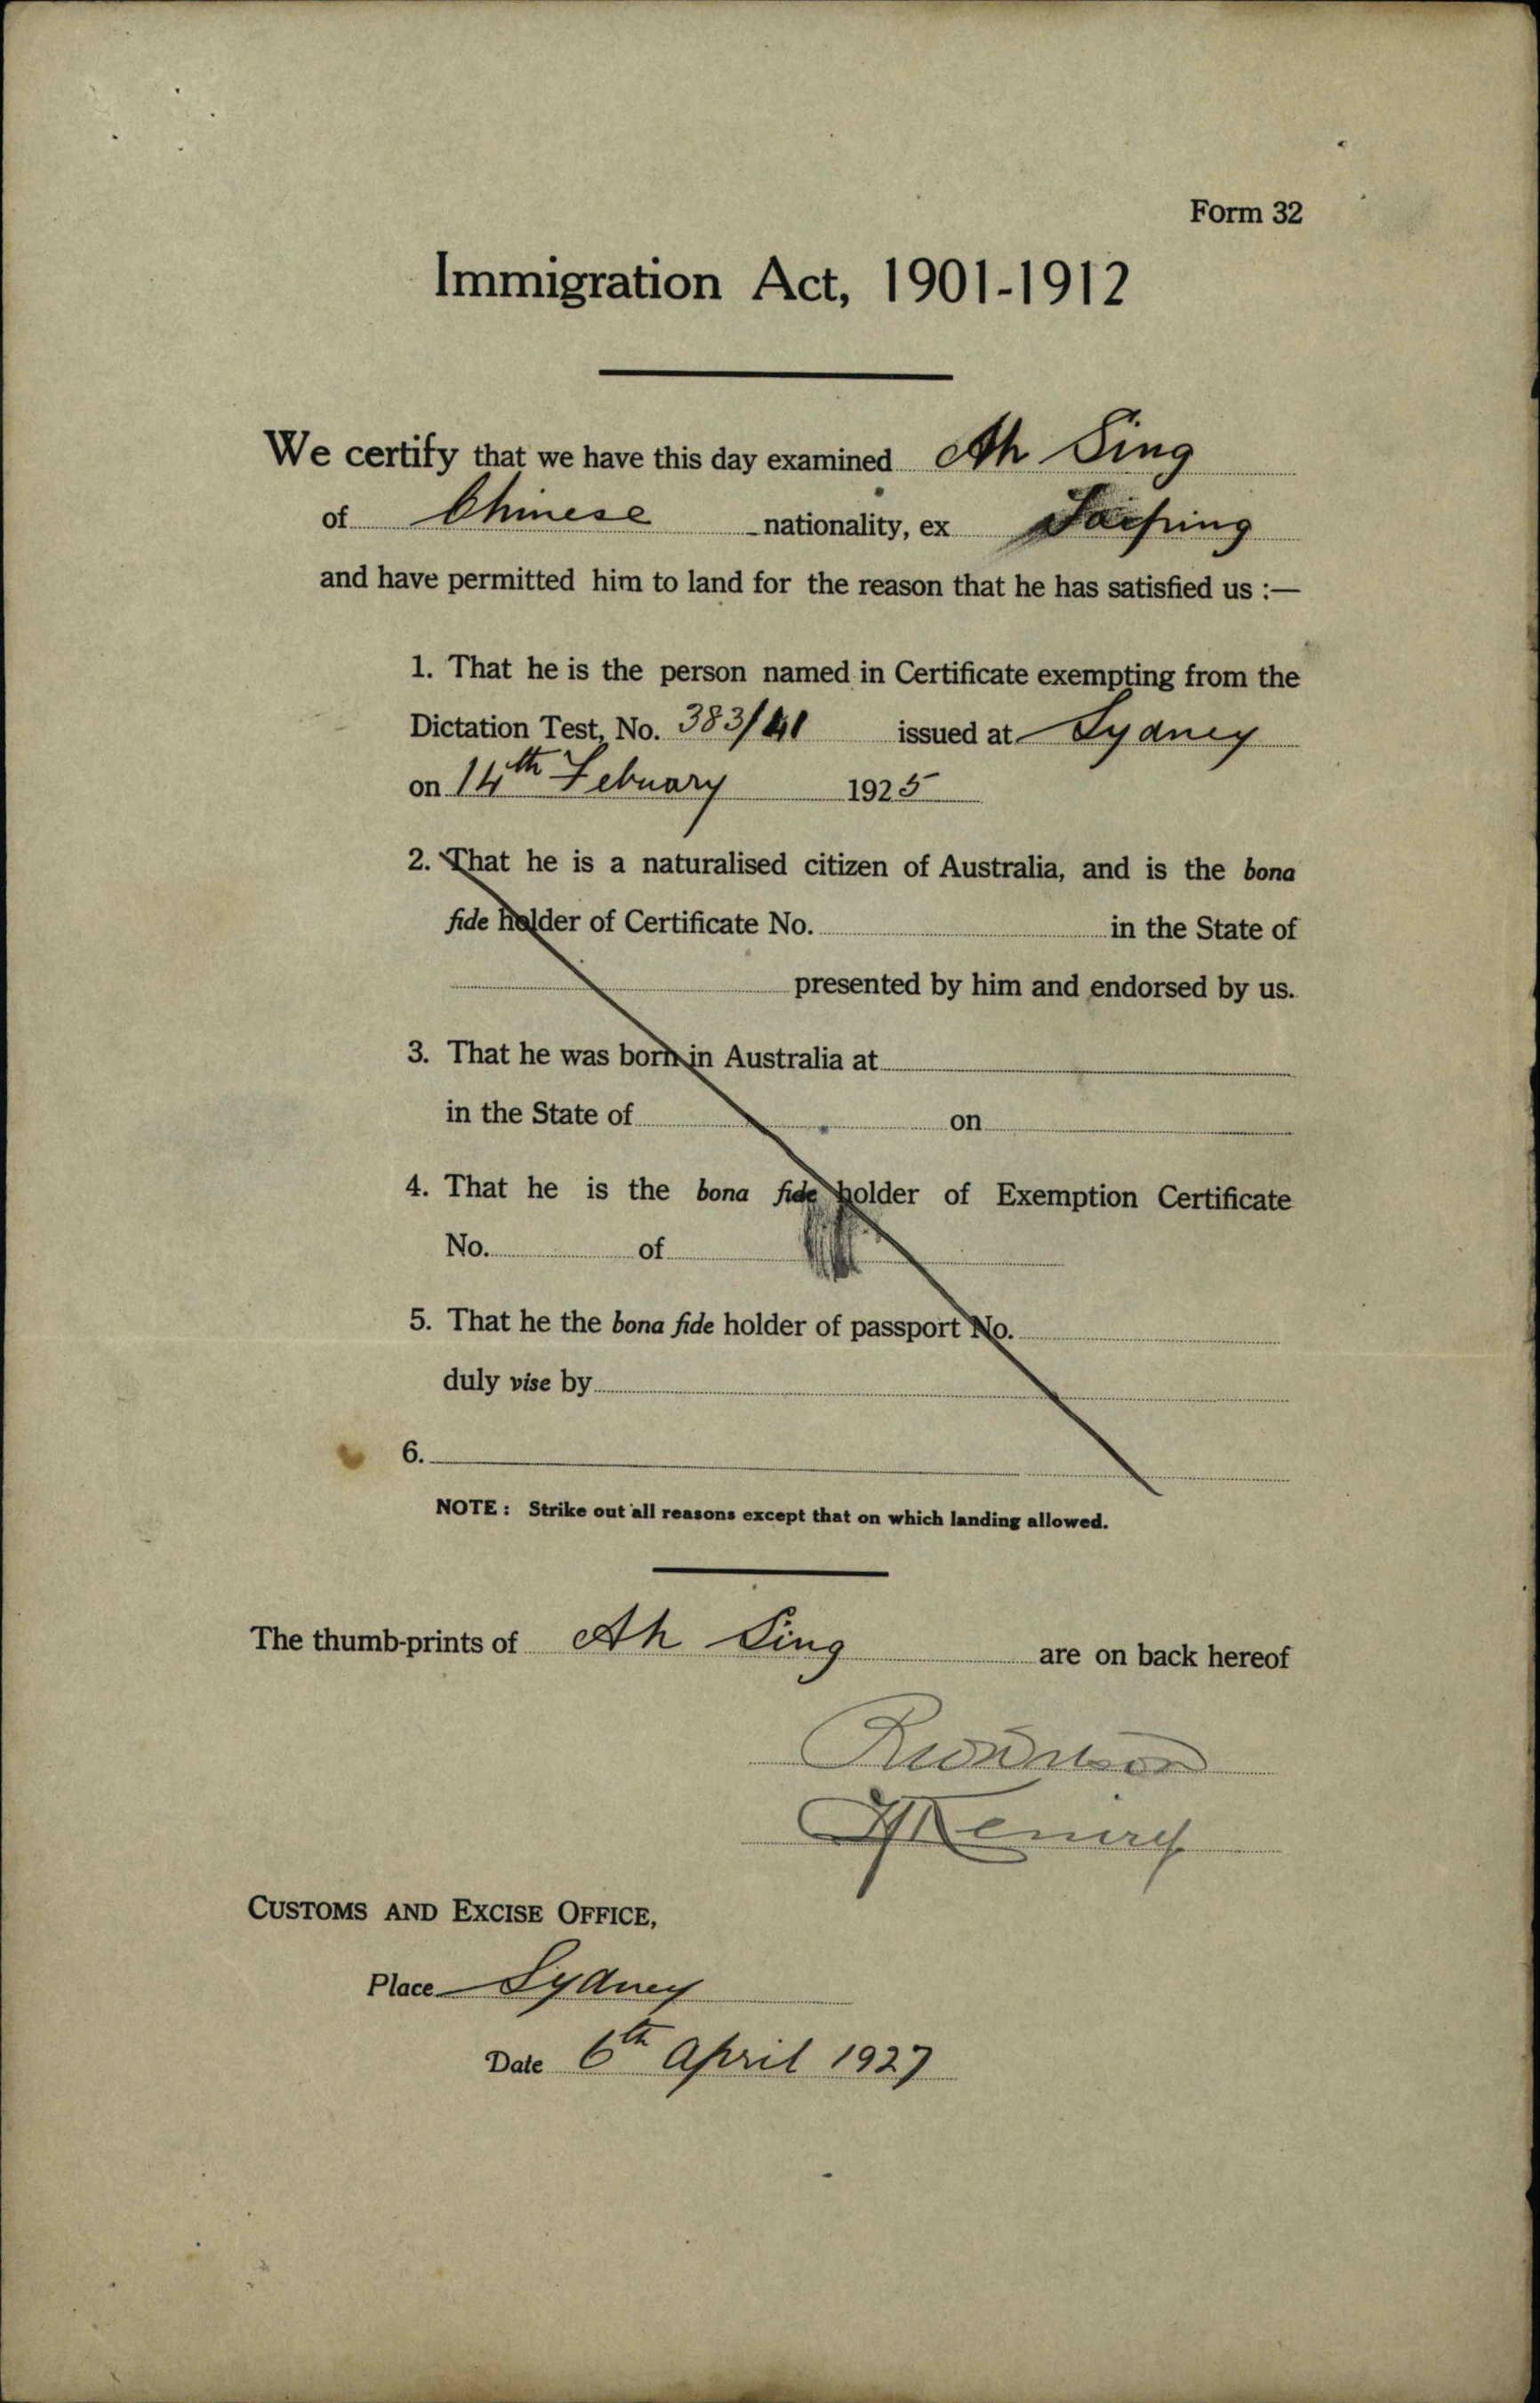 Form 32
Immigration Act, 1901-1912
We certify that we have this day examined Ah Sing
of Chinese nationality, ex Taiping
and have permitted him to land for the reason that he has satisfied us :—
1. That he is the person named in Certificate exempting from the
Dictation Test, No. 383/41 issued at Sydney
on 14th Febuary 1925
2. That he is a naturalised citizen of Australia, and is the bona
fide holder of Certificate No. in the State of
presented by him and endorsed by us.
3. That he was born in Australia at
in the State of on
4. That he is the bona fide holder of Exemption Certificate
No. of
5. That he the bona fide holder of passport No.
duly vise by
6.
NOTE : Strike out all reasons except that on which landing allowed.
The thumb-prints of Ah Sing are on back hereof
CUSTOMS AND EXCISE OFFICE,
Place Sydney
Date 6th April 1927